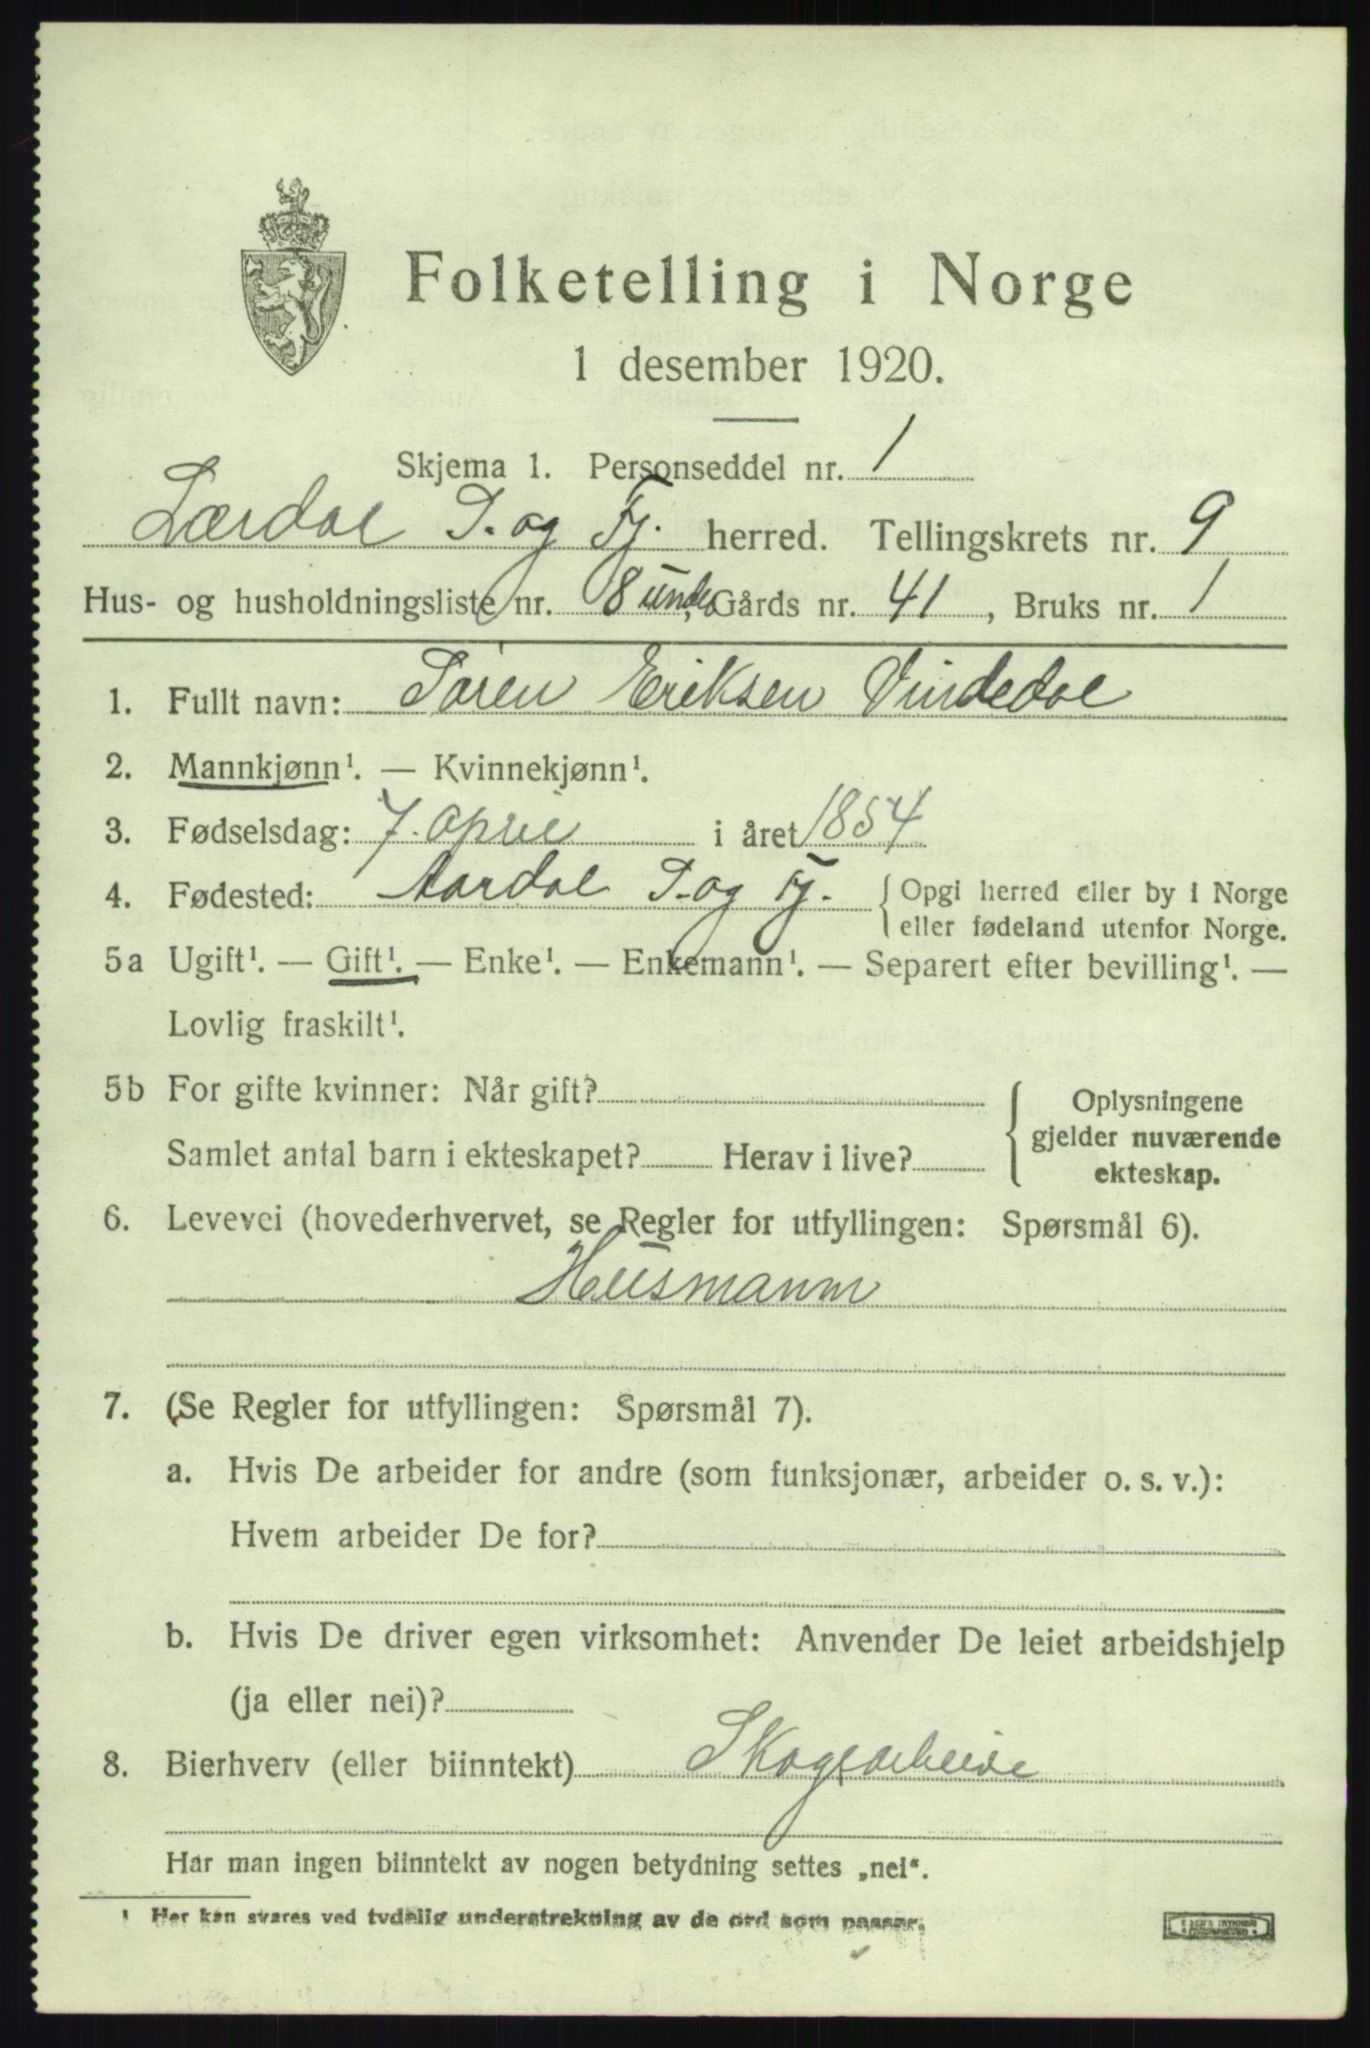 Folketelling i Norge
1 desember 1920.
Skjema 1. Personseddel nr. 1
Lærdal S. og Fj. herred. Tellingskrets nr. 9
Hus- og husholdningsliste nr. 8 under, Gårds nr. 41, Bruks nr. 1
1. Fullt navn: Søren Eriksen Vindedal
2. Mannkjønn¹. — Kvinnekjønn¹.
3. Fødselsdag: 7. april i året 1854
4. Fødested: Aardal S. og Fj. { Opgi herred eller by i Norge
eller fødeland utenfor Norge.
5a Ugift¹. — Gift¹. — Enke¹. — Enkemann¹. — Separert efter bevilling¹. —
Lovlig fraskilt¹.
5b For gifte kvinner: Når gift? { Oplysningene
gjelder nuværende
Samlet antal barn i ekteskapet? Herav i live?
ekteskap.
6. Levevei (hovederhvervet, se Regler for utfyllingen: Spørsmål 6).
Husmann
7. (Se Regler for utfyllingen: Spørsmål 7).
a. Hvis De arbeider for andre (som funksjonær, arbeider o. s. v.):
Hvem arbeider De for?
b. Hvis De driver egen virksomhet: Anvender De leiet arbeidshjelp
(ja eller nei)?
8. Bierhverv (eller biinntekt) Skogsarbeide
Har man ingen biinntekt av nogen betydning settes „nei“.
¹ Her kan svares ved tydelig understrekning av de ord som passer.